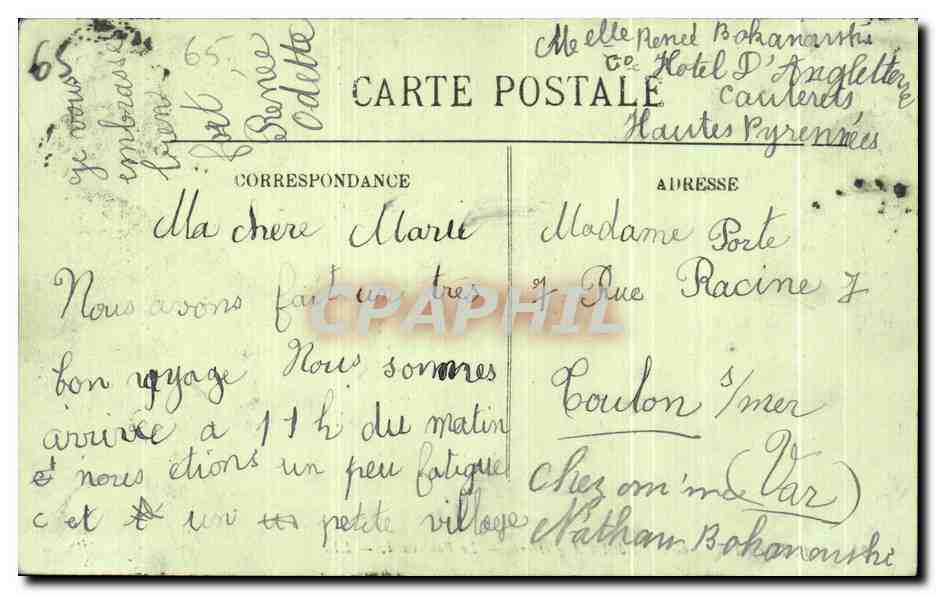 65
je vous
embrasse
bien
65
fort
Renée
Odette
Melle Reneé Bokanowski
Co Hotel D'Angletterre
Cauterets
Hautes Pyrennées
CARTE POSTALE
CORRESPONDANCE
ADRESSE
Ma chère Marie
Nous avons fait un très
bon voyage Nous sommes
arrivée a 11h du matin
et nous étions un peu fatigue
c et un petite village
Madame Porte
7 Rue Racine 7
Toulon s/mer
(Var)
chez
Nathan Bokanowski
CPAPHIL